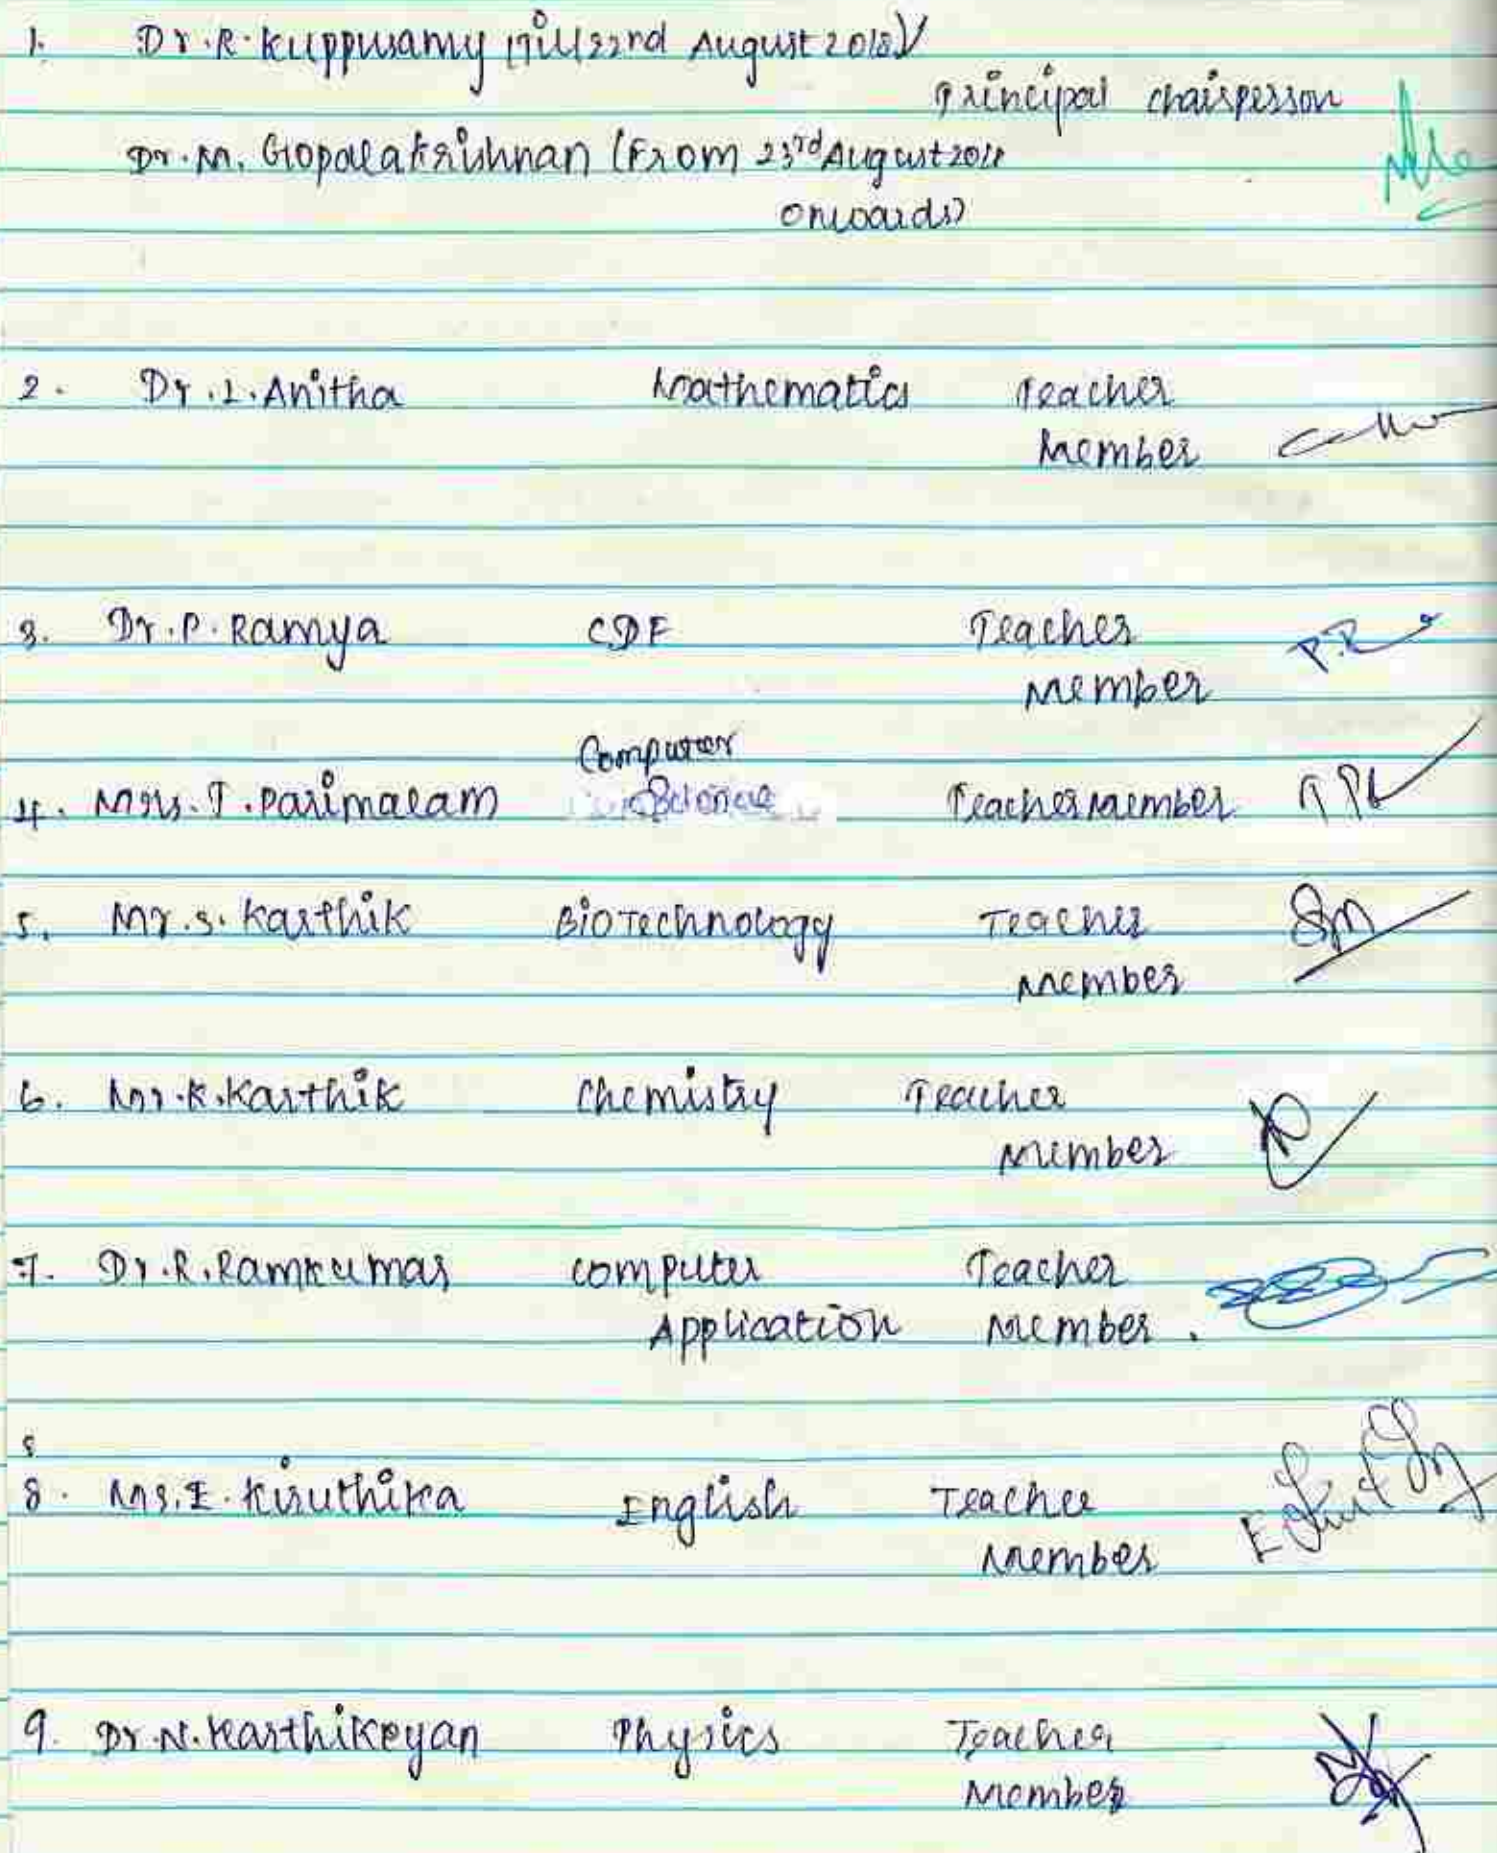 1. Dr. R. Kuppusamy (Till 22nd August 2018)
Principal Chairperson
Dr. M. Gopalakrishnan (From 23rd August 2018
onwards)
2. Dr. L. Anitha Mathematics Teacher
Member
3. Dr. P. Ramya CDF Teacher
Member
Computer
4. Mrs. T. Parimalam Science Teacher Member
5. Mr. S. Karthik Bio Technology Teacher
Member
6. Mr. K. Karthik Chemistry Teacher
Member
7. Dr. R. Ramkumar Computer Teacher
Application Member.
8
8. Ms. E. Kiruthika English Teacher
Member
9. Dr. N. Karthikeyan Physics Teacher
Member